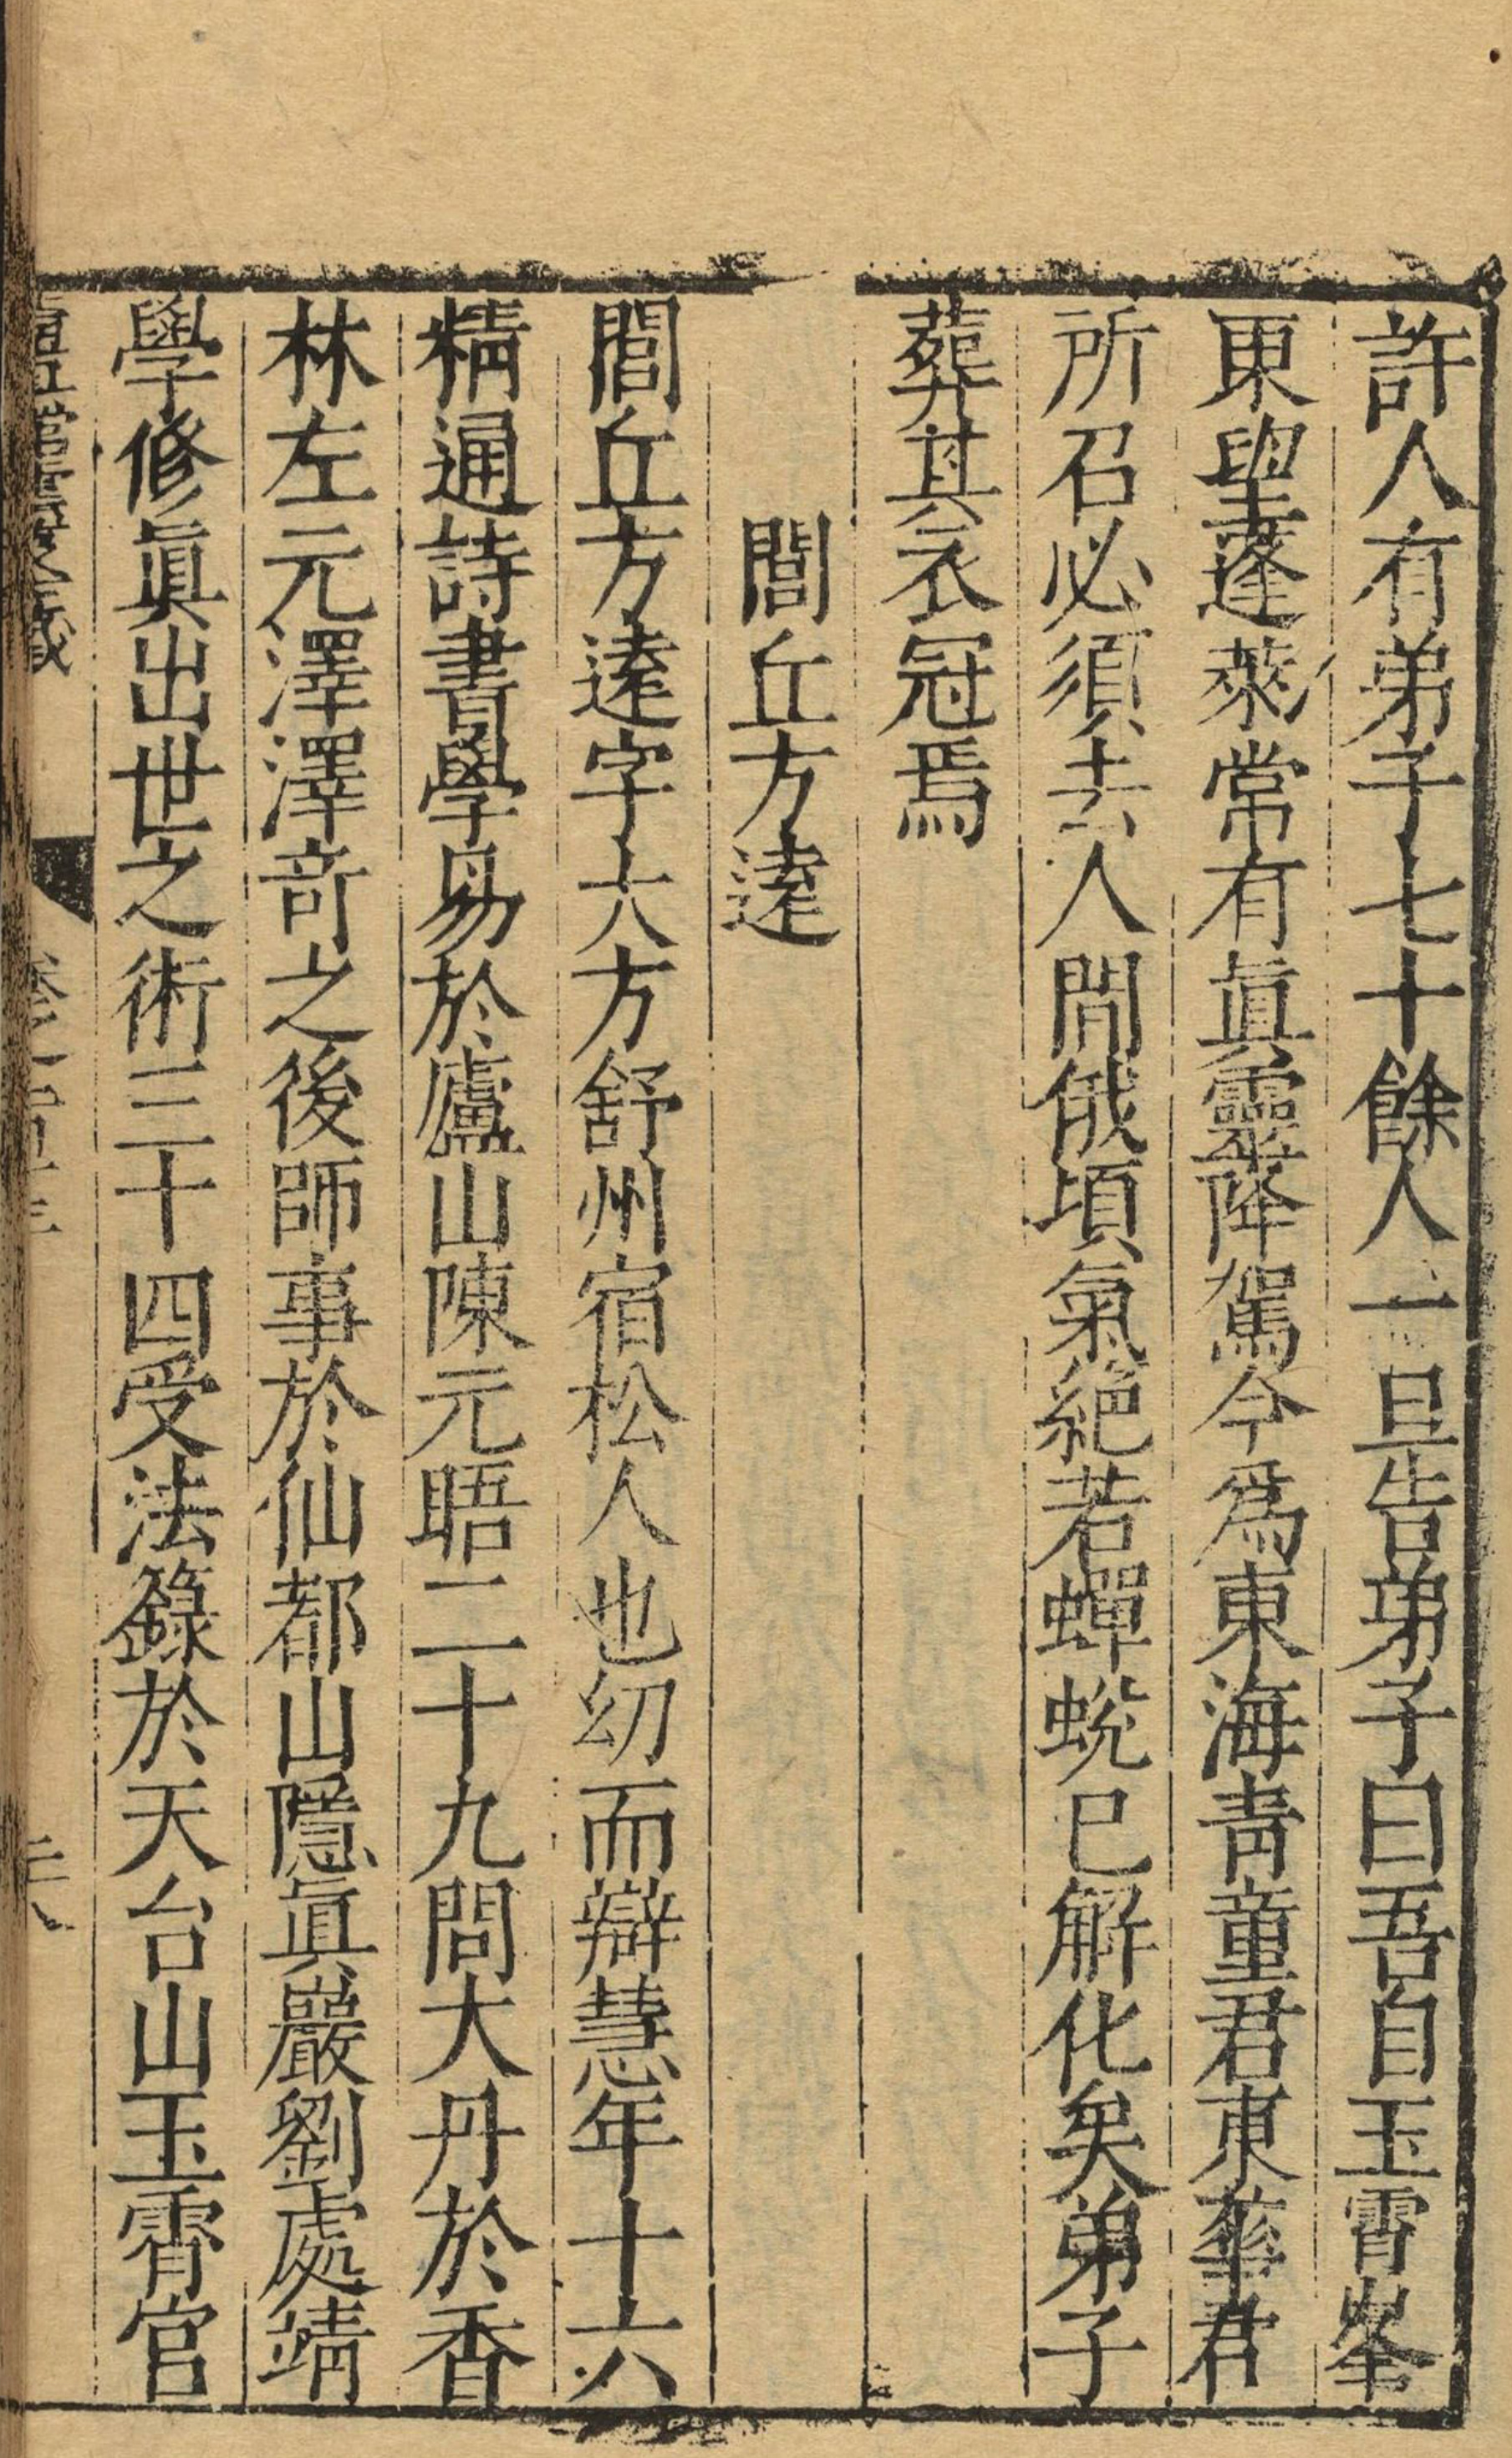 許人有弟子七十餘人一旦告弟子曰吾自玉霄峯
東望蓬萊常有眞靈降駕今爲東海靑童君東華君
所召必須去人間俄頃氣絕若蟬蛻已解化矣弟子
葬其衣冠焉
閭丘方遠
閭丘方遠字大方舒州宿松人也幼而辯慧年十六
精通詩書學易於廬山陳元晤二十九問大丹於香
林左元澤澤奇之後師事於仙都山隱眞巖劉處靖
學修眞出世之術三十四受法籙於天台山玉霄宮